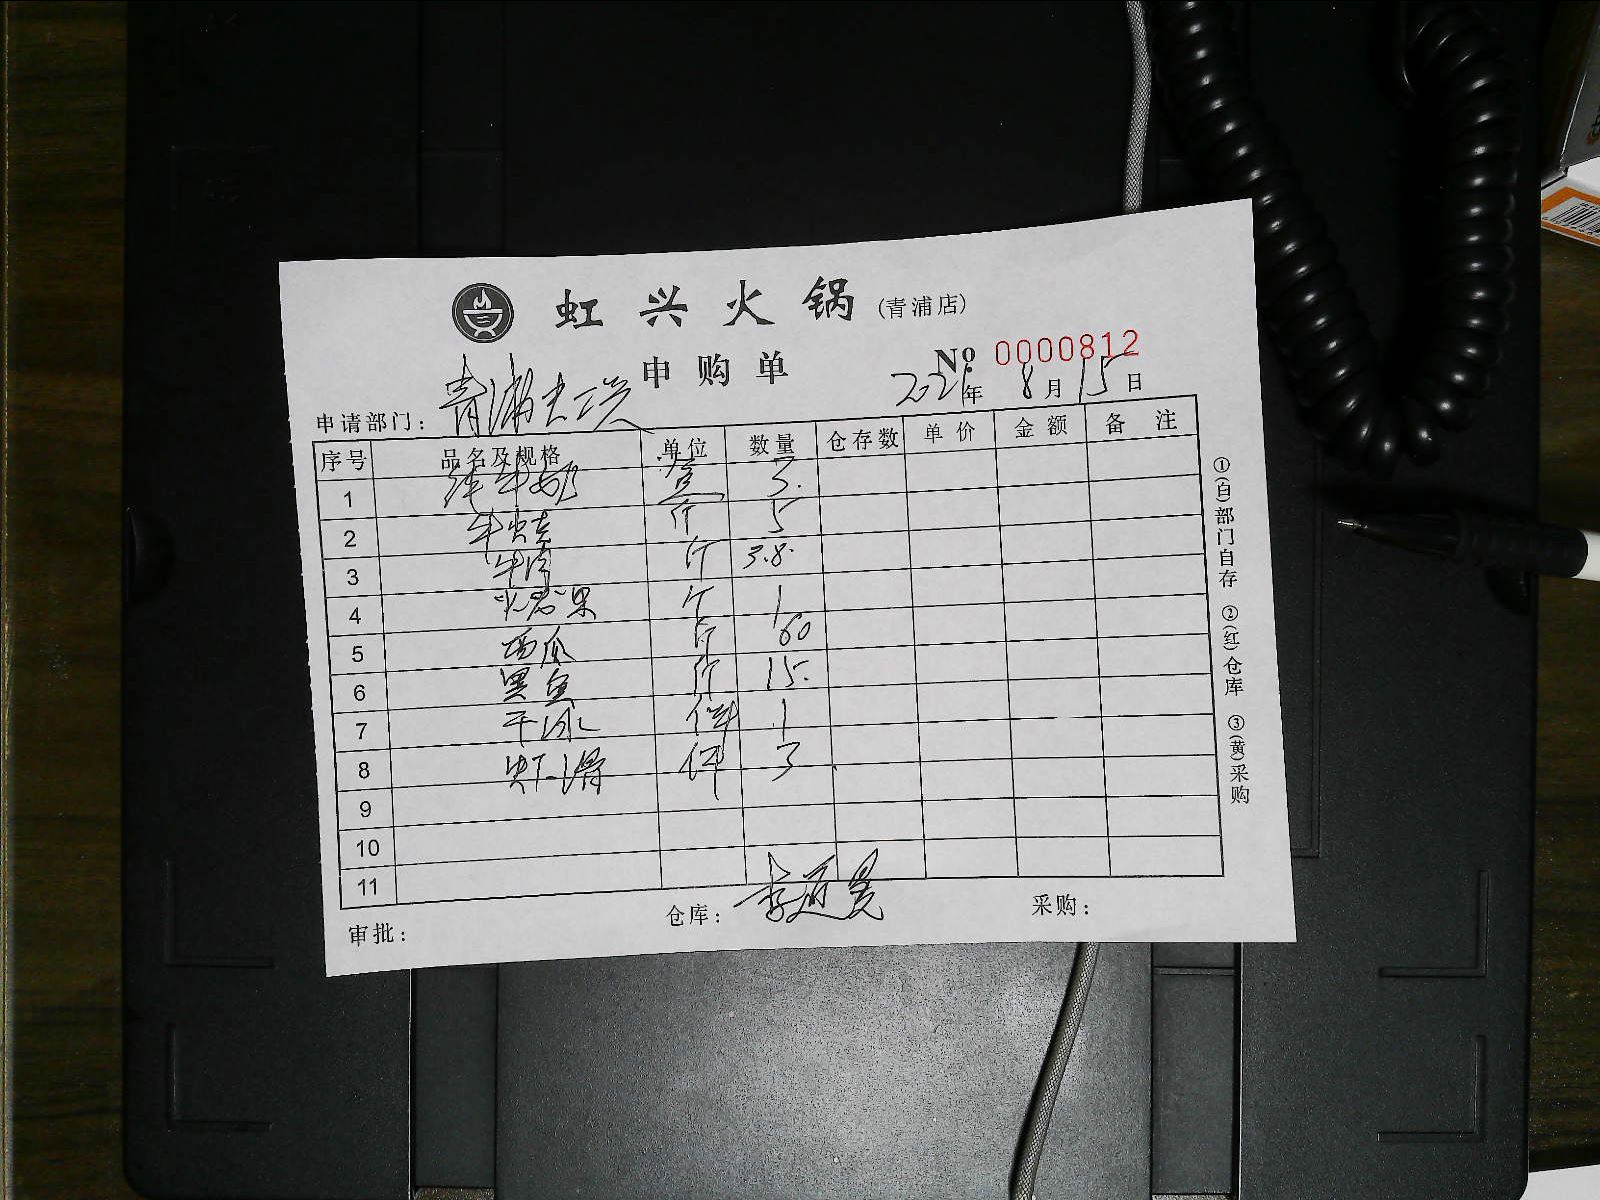 虹兴火锅(青浦店)
申购单 Nº 0000812
2021年 8月 15日
申请部门: 青浦
序号 品名及规格 单位 数量 仓存数 单价 金额 备注
1 纯牛奶 3.
2 斤 5
3 牛肉 斤 3.8.
4 火龙果 个 1
5 西瓜 斤 60
6 黑鱼 斤 15.
7 干冰 件 1
8 虾滑 件 3
9
10
11
审批: 仓库: 采购:
①(白)部门自存 ②(红)仓库 ③(黄)采购